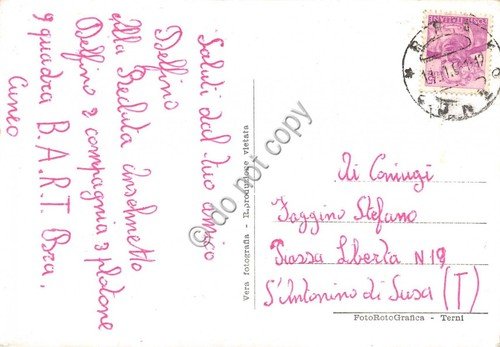 Saluti dal tuo amico
Delfino
alla Recluta Anselmetto
Delfino 2 compagnia 3 plotone
9 squadra B.A.R.T. Bra,
Cuneo
Vera fotografia - Riproduzione vietata
Ai Coniugi
Faggino Stefano
Piassa Liberta N 19
S'Antonino di Susa (T)
FotoRotoGrafica - Terni
© do not copy